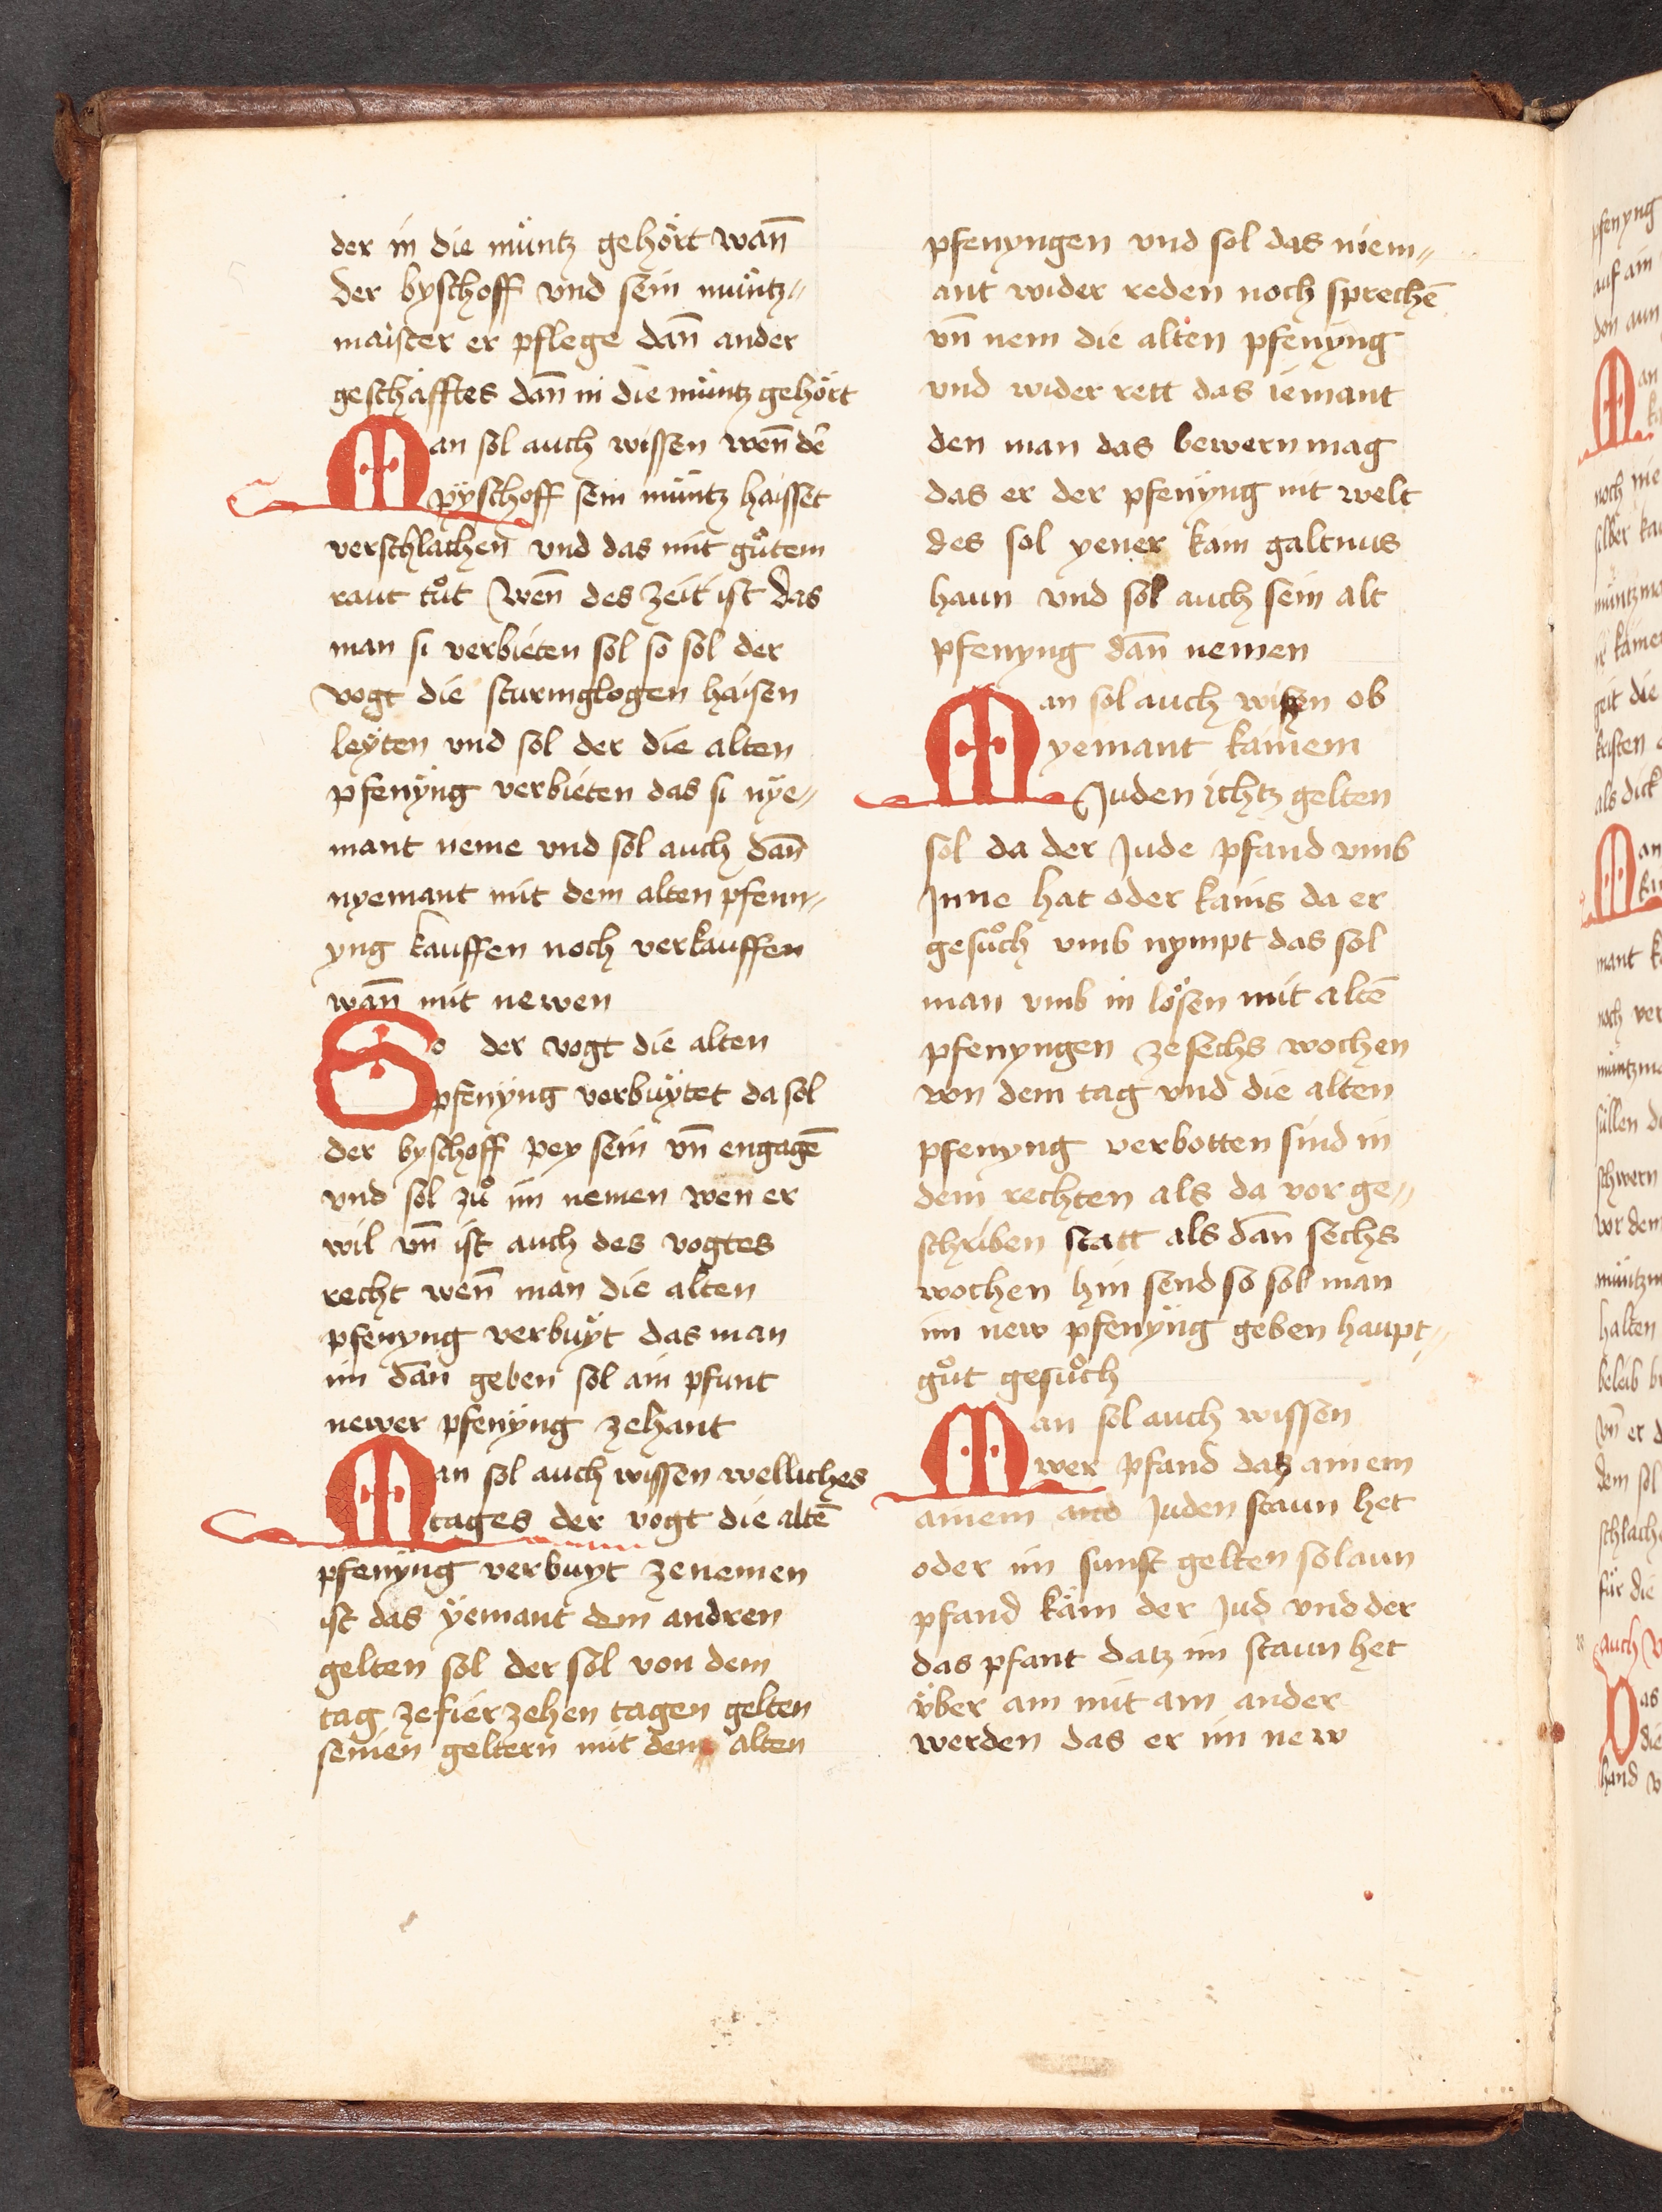 der in die müntz gehört wann̄
der byschoff vnd sein müntz„
maister er pflege dann̄ ander
geschäfftes dann̄ in die müntz gehört
Man sol auch wissen wenn̄ dē
pÿschoff sein müntz haisset
verschlachen vnd das mit gůtem
raut tůt wenn̄ des zeit ist das
man si verbieten sol so sol der
vogt die sturmglogen haisen
leÿten vnd sol der die alten
pfenÿng verbieten das si nÿe„
mant neme vnd sol auch dann̄
nyemant mit dem alten pfenn„
yng kauffen noch verkauffen
wann̄ mit newen
So der vogt die alten
pfenÿng verbuÿtet da sol
der byschoff pey sein vn̄ engagē
vnd sol zů im nemen wen er
wil vn̄ ist auch des vogtes
recht wenn̄ man die alten
pfenyng verbuÿt das man
im dan̄ geben sol ain pfunt
newer pfenÿng zehant
Man sol auch wissen welliches
tages der vogt die altē
pfenÿng verbuyt ze nemen
ist das ÿemant dem andren
gelten sol der sol von dem
tag ze fierzehen tagen gelten
seinen geltern mit dem alten
pfenyngen vnd sol das niem„
ant wider reden noch sprechē
vn̄ nem die alten pfenÿng
vnd wider rett das iemant
den man das bewern mag
das er der pfenÿng nit welt
des sol yener kain galtnus
haun vnd sol auch sein alt
pfenyng dan̄ nemen
Man sol auch wissen ob
yemant kainem
Juden ichtz gelten
sol da der Jude pfand vmb
Jnne hat oder kains da er
gesůch vmb nympt das sol
man vmb in lösen mit altē
pfenyngen ze sechs wochen
von dem tag vnd die alten
pfenyng verbotten sind in
dem rechten als da vor ge„
schriben statt als dan̄ sechs
wochen hin send so sol man
im new pfenÿng geben haupt„
gůt gesůch
Man sol auch wissen
wer pfand datz ainem
ainem Juden staun het
oder im sunst gelten sol aun
pfand käm der Jud vnd der
das pfant datz im staun het
v̈ber ain mit ain ander
werden das er im new